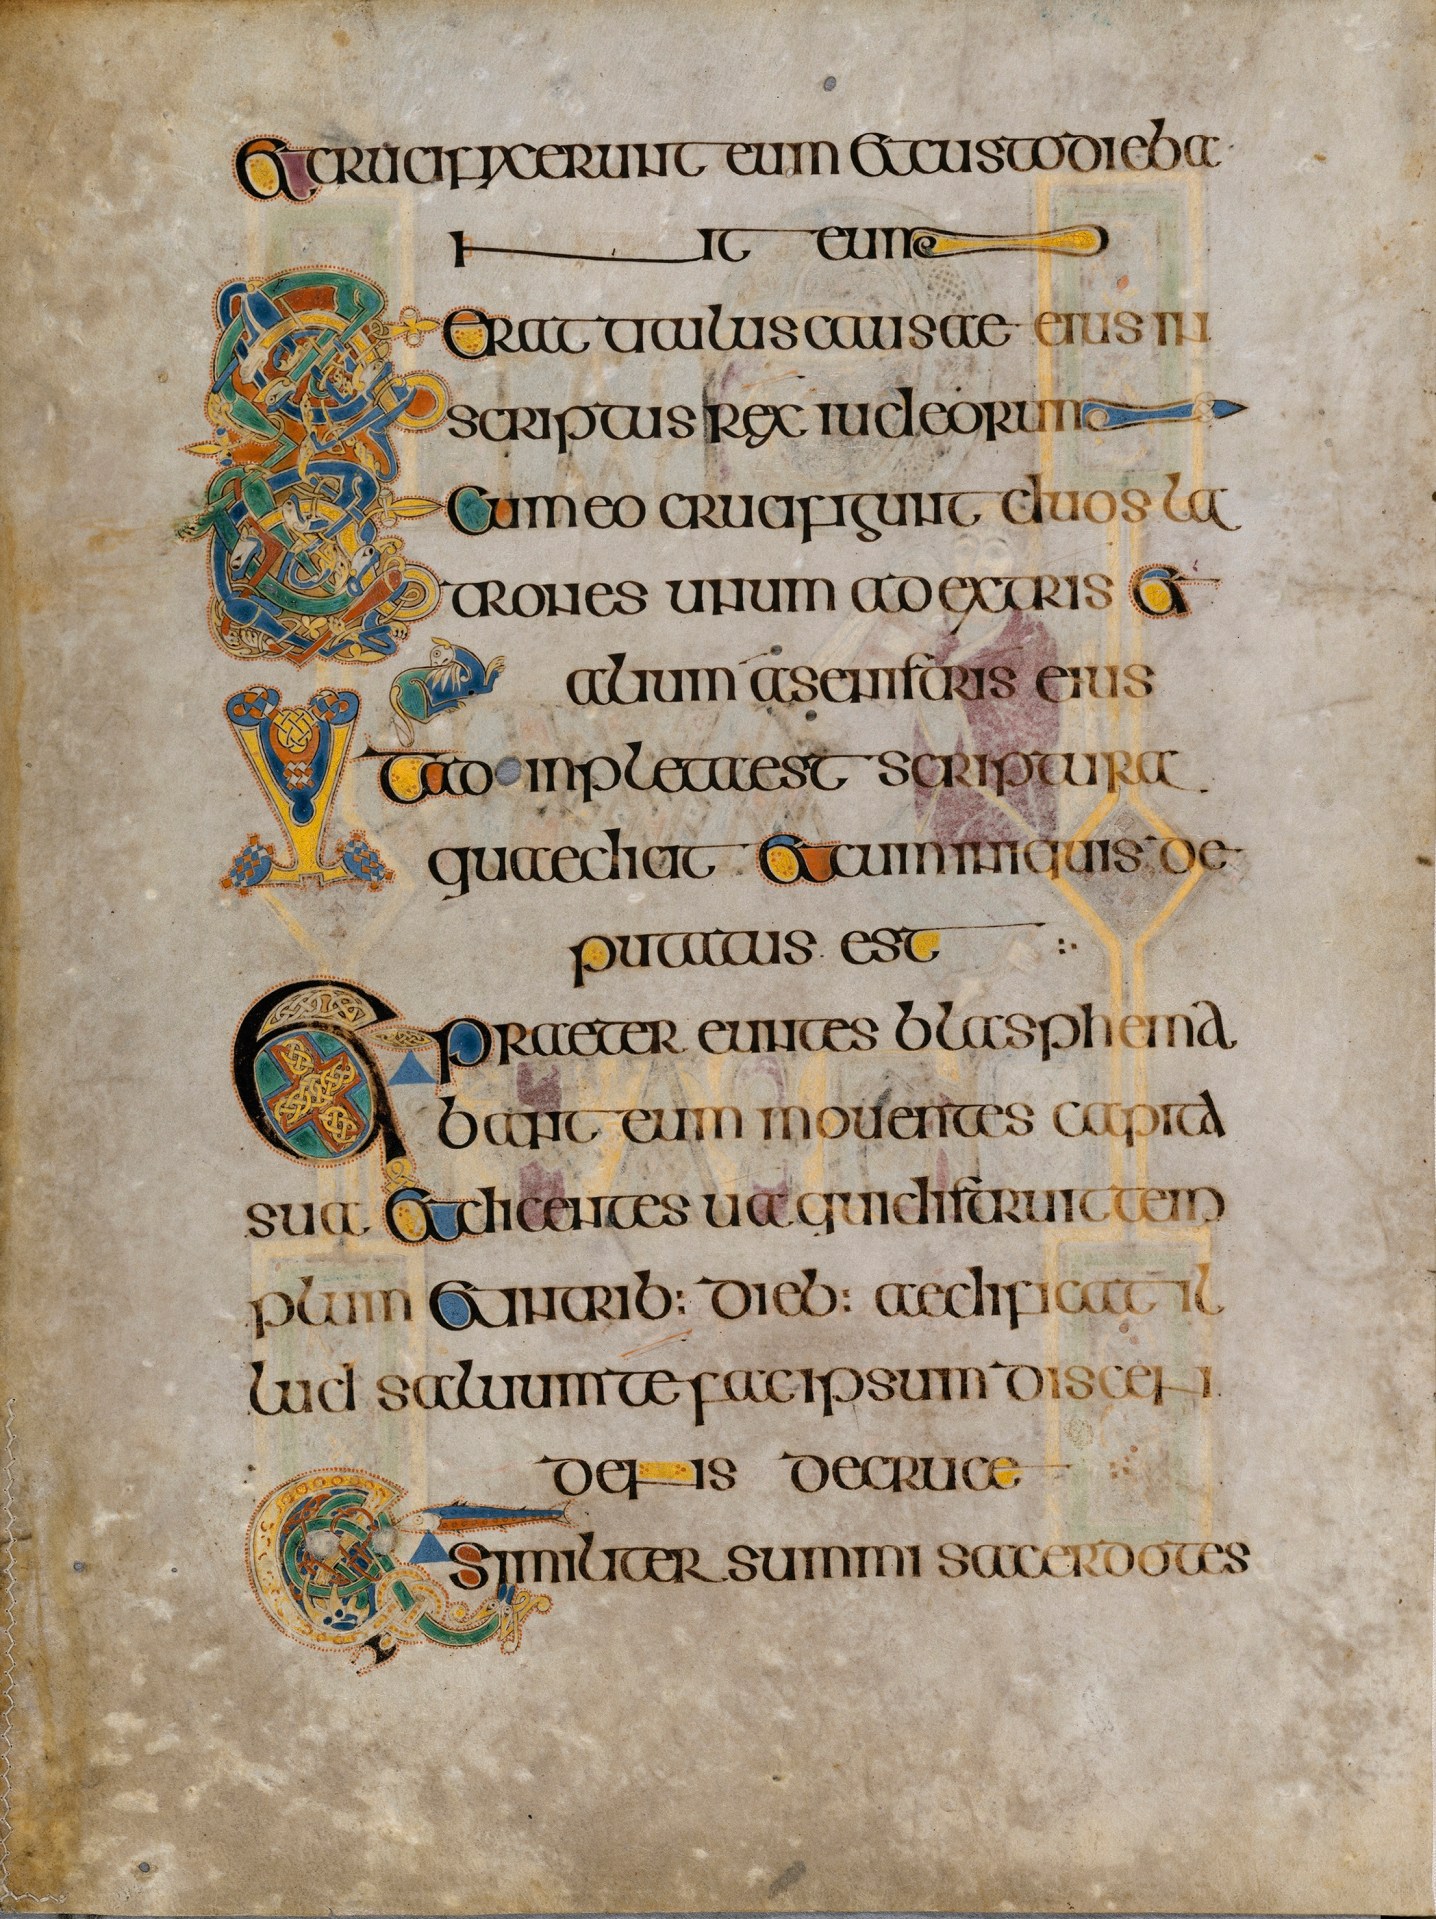 Et crucifixerunt eum et custodieba
nt eum
Et erat titulus causae eius in
scriptus rex iudeorum
Et cum eo crucifigunt duos la
trones unum adextris et
alium asenistris eius
Vt adinpleta est scriptura
quae dicit et cum iniquis de
putatus est
Et praeter euntes blasphema
bant eum mouentes capita
sua et dicentes ua qui distruit tem
plum et in trib: dieb: aedificat il
lud saluum te fac ipsum discen
dens de cruce
Et similiter summi sacerdotes